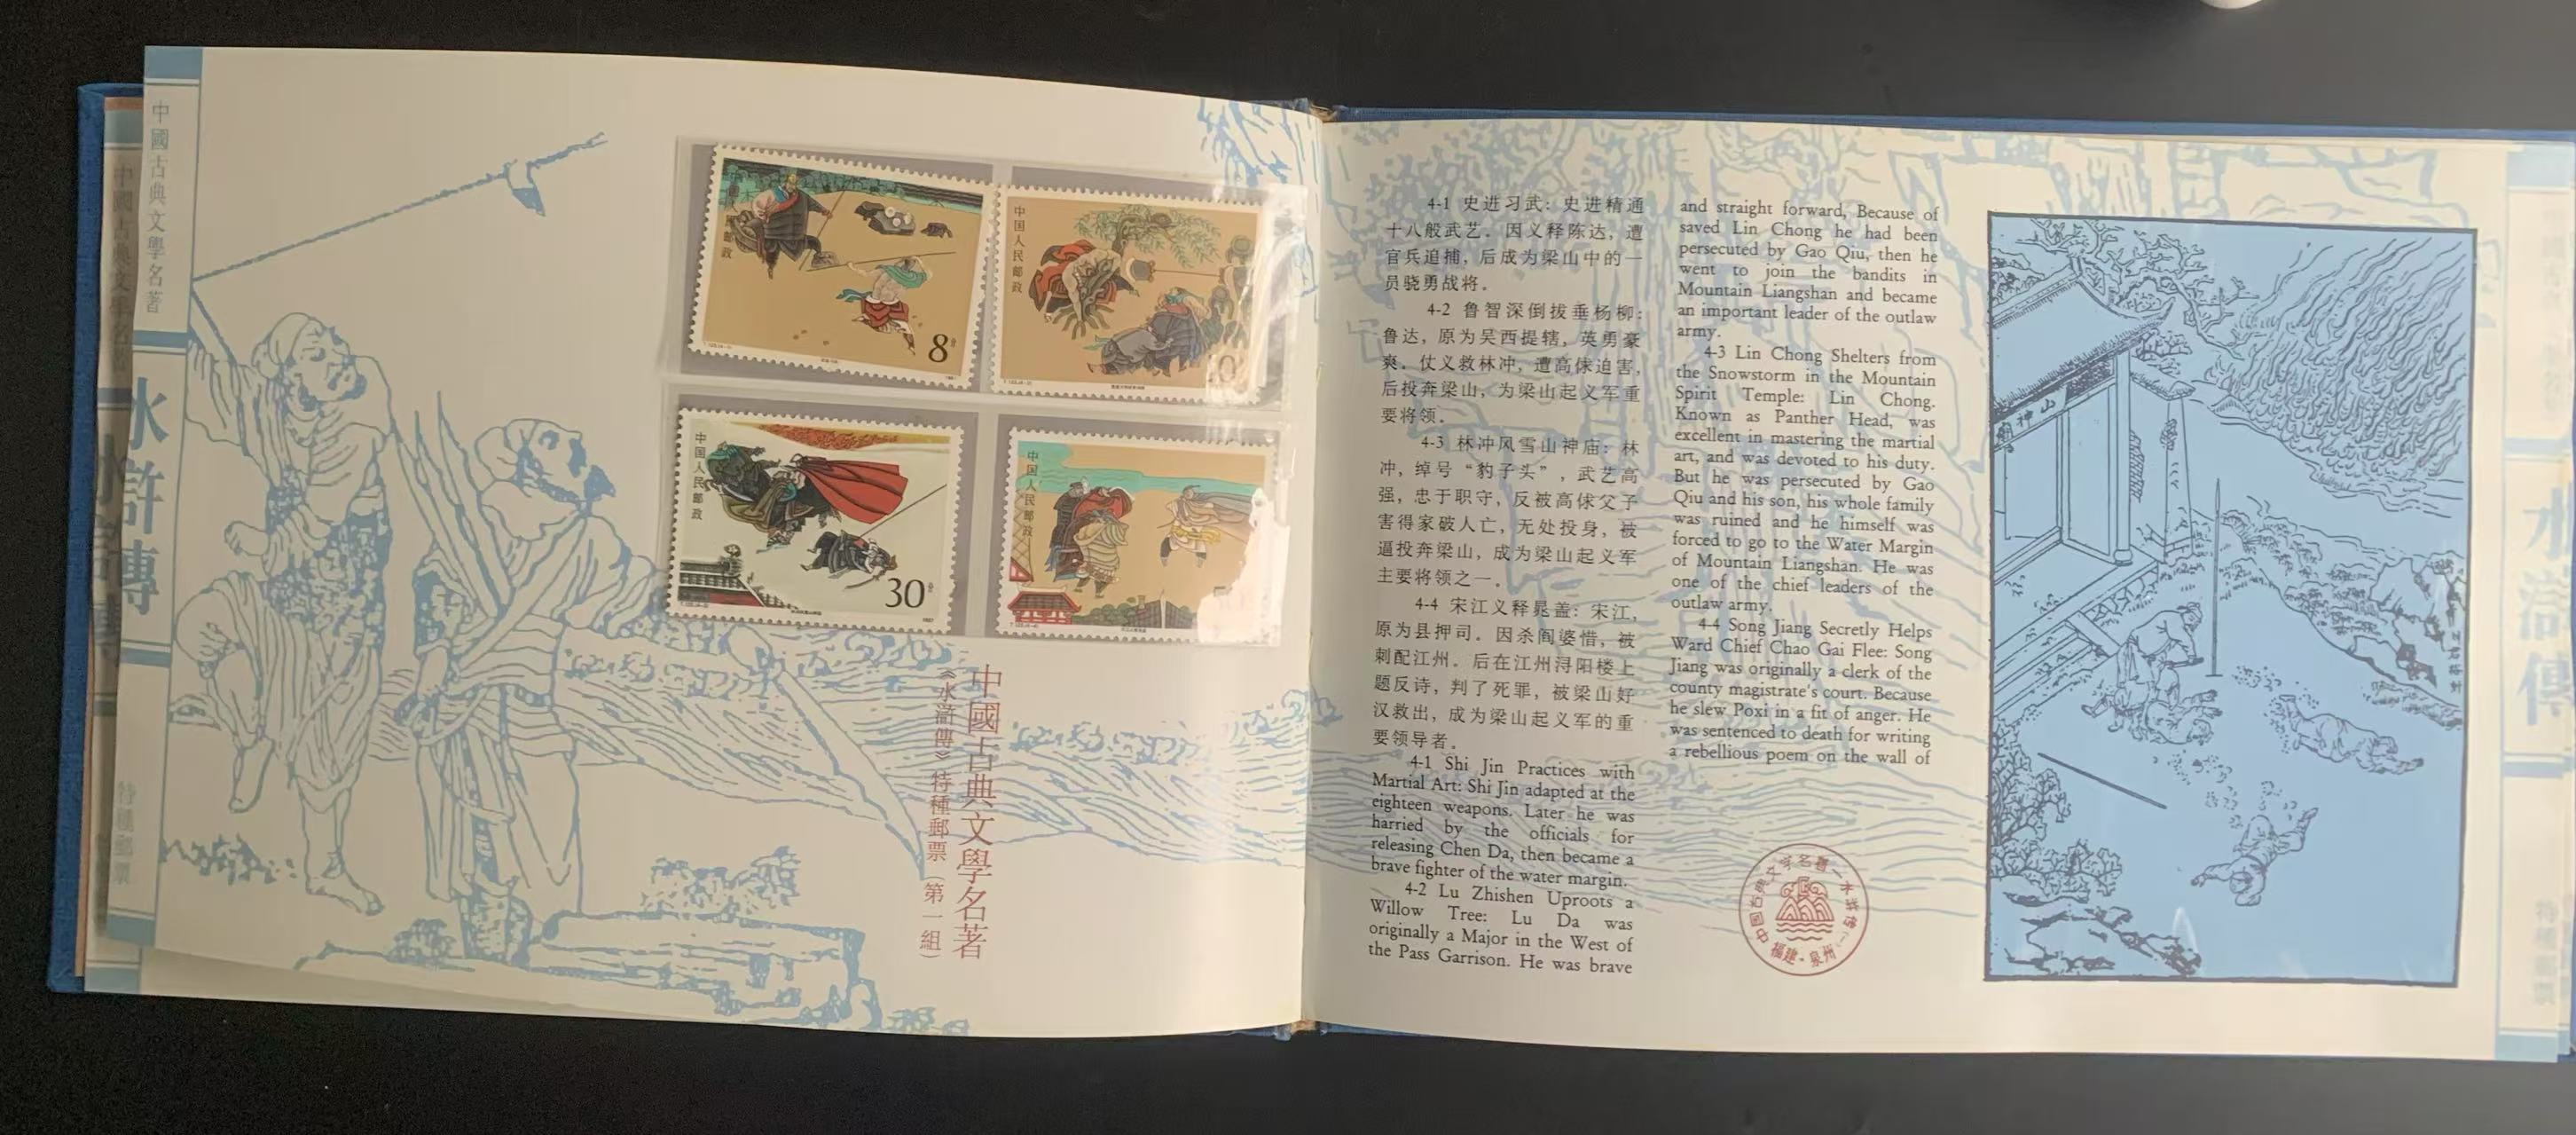 中國古典文學名著
水滸傳
特種郵票
中国人民邮政
8分
T.123.(4-1)
1987
中国人民邮政
T.123.(4-2)
中国人民邮政
30分
T.123.(4-3)
1987
中国人民邮政
T.123.(4-4)
中國古典文學名著
《水滸傳》特種郵票（第一組）
4-1 史进习武：史进精通
十八般武艺．因义释陈达，遭
官兵追捕，后成为梁山中的一
员骁勇战将．
4-2 鲁智深倒拔垂杨柳：
鲁达，原为吴西提辖，英勇豪
爽．仗义救林冲，遭高俅迫害，
后投奔梁山，为梁山起义军重
要将领．
4-3 林冲风雪山神庙：林
冲，绰号“豹子头”，武艺高
强，忠于职守，反被高俅父子
害得家破人亡，无处投身，被
逼投奔梁山，成为梁山起义军
主要将领之一．
4-4 宋江义释晁盖：宋江，
原为县押司．因杀阎婆惜，被
刺配江州．后在江州浔阳楼上
题反诗，判了死罪，被梁山好
汉救出，成为梁山起义军的重
要领导者．
4-1 Shi Jin Practices with
Martial Art: Shi Jin adapted at the
eighteen weapons. Later he was
harried by the officials for
releasing Chen Da, then became a
brave fighter of the water margin.
4-2 Lu Zhishen Uproots a
Willow Tree: Lu Da was
originally a Major in the West of
the Pass Garrison. He was brave
and straight forward, Because of
saved Lin Chong he had been
persecuted by Gao Qiu, then he
went to join the bandits in
Mountain Liangshan and became
an important leader of the outlaw
army.
4-3 Lin Chong Shelters from
the Snowstorm in the Mountain
Spirit Temple: Lin Chong.
Known as Panther Head, was
excellent in mastering the martial
art, and was devoted to his duty.
But he was persecuted by Gao
Qiu and his son, his whole family
was ruined and he himself was
forced to go to the Water Margin
of Mountain Liangshan. He was
one of the chief leaders of the
outlaw army.
4-4 Song Jiang Secretly Helps
Ward Chief Chao Gai Flee: Song
Jiang was originally a clerk of the
county magistrate's court. Because
he slew Poxi in a fit of anger. He
was sentenced to death for writing
a rebellious poem on the wall of
中国古典文学名著—水浒传(一)
福建·泉州
廟神山
水滸傳
特種郵票